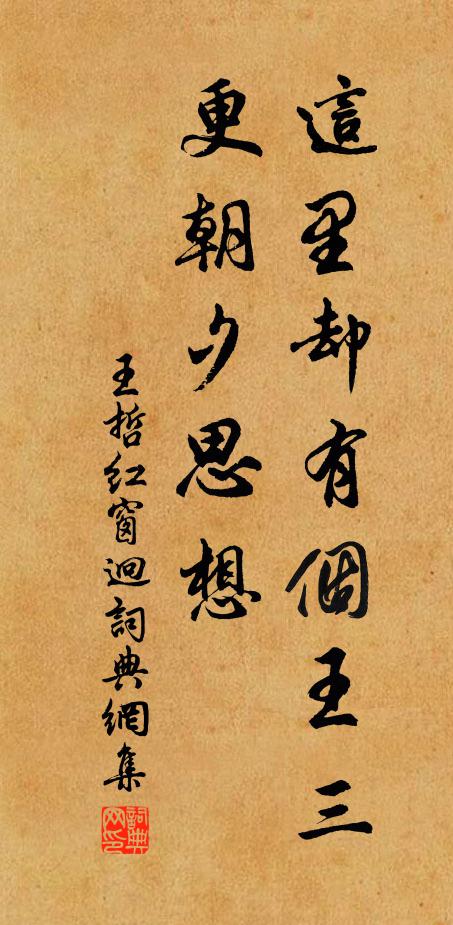 這里却有個王三
更朝夕思想
王哲紅窗迥詞典網集
詞典网印